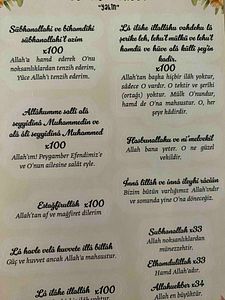 "YASİN"
Sübhanallahi ve bihamdihi
sübhanallahi'l azim
x100
Allah'a hamd ederek O'nu
noksanlıklardan tenzih ederim,
Yüce Allah'ı tenzih ederim.
Allâhumme salli alâ
seyyidinâ Muhammedin ve
alâ âli seyyidinâ Muhammed
x100
Allah'ım! Peygamber Efendimiz'e
ve O'nun ailesine salât eyle.
Estağfirullâh x100
Allah'tan af ve mağfiret dilerim
Lâ havle velâ kuvvete illâ billâh
Güç ve kuvvet ancak Allah'a mahsustur.
Lâ ilâhe illallâh x100
Lâ ilâhe illallâhu vahdehu lâ
şerike leh, lehu'l mülkü ve lehu'l
hamdü ve hüve alâ külli şey'in
kadir.
x100
Allah'tan başka hiçbir ilâh yoktur,
sadece O vardır. O tektir ve şeriki
(ortağı) yoktur. Mülk O'nundur,
hamd de O'na mahsustur. O, her
şeye kâdirdir.
Hasbunallahu ve ni'melvekil
Allah bana yeter. O ne güzel
vekildir.
İnnâ lillâh ve innâ ileyhi râciûn
Bizim bütün varlığımız Allah'ındır
ve sonunda yine O'na döneceğiz.
Subhanallah x33
Allah noksanlıklardan
münezzehtir.
Elhamdulillah x33
Hamd Allah'adır.
Allahuekber x34
Allah en büyüktür.